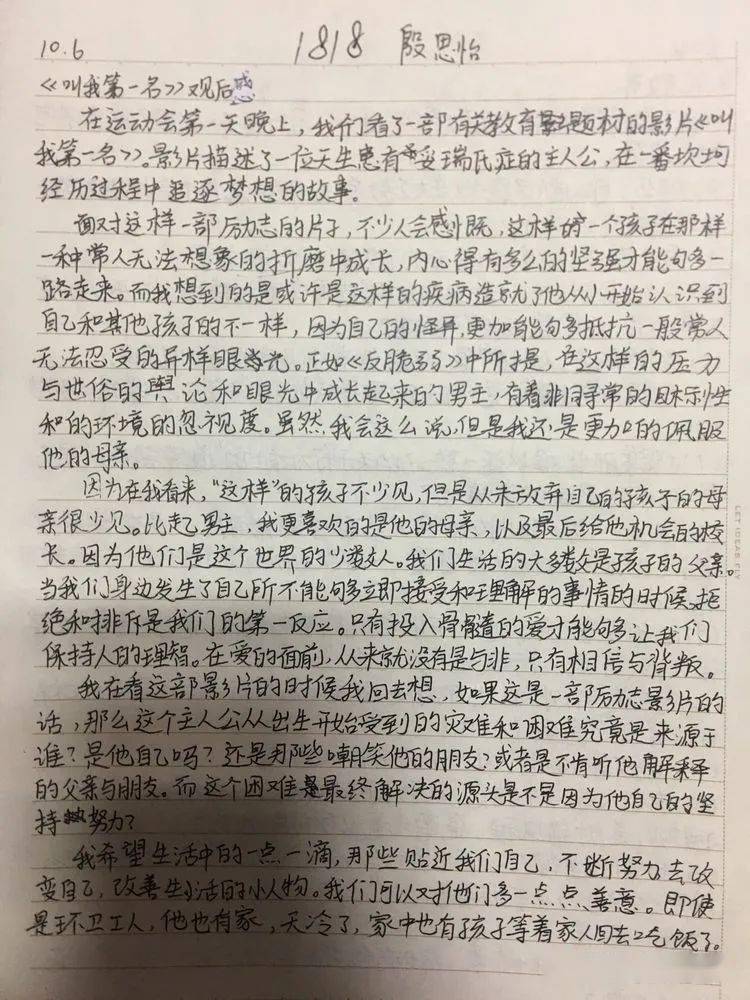 10.6 1818 殷思怡
《叫我第一名》观后感
在运动会第一天晚上，我们看了一部有关教育题材的影片《叫
我第一名》。影片描述了一位天生患有妥瑞氏症的主人公，在一番坎坷
经历过程中追逐梦想的故事。
面对这样一部励志的片子，不少人会感慨，这样的一个孩子在那样
一种常人无法想象的折磨中成长，内心得有多么的坚强才能够多一
路走来。而我想到的是或许是这样的疾病造就了他从小开始认识到
自己和其他孩子的不一样，因为自己的怪异，更加能够多抵抗一般常人
无法忍受的异样眼光。正如《反脆弱》中所提，在这样的压力
与世俗的舆论和眼光中成长起来的男主，有着非同寻常的目标性
和的环境的忽视度。虽然我会这么说，但是我还是更加的佩服
他的母亲。
因为在我看来，“这样”的孩子不少见，但是从未放弃自己的孩子的母
亲很少见。比起男主，我更喜欢的是他的母亲，以及最后给他机会的校
长。因为他们是这个世界的少数人。我们生活的大多数是孩子的父亲。
当我们身边发生了自己所不能够立即接受和理解的事情的时候，拒
绝和排斥是我们的第一反应。只有投入骨髓的爱才能够多让我们
保持人的理智。在爱的面前，从来就没有是与非，只有相信与背叛。
我在看这部影片的时候我回去想，如果这是一部励志影片的
话，那么这个主人公从出生开始受到的灾难和困难究竟是来源于
谁？是他自己吗？还是那些嘲笑他的朋友？或者是不肯听他解释
的父亲与朋友。而这个困难最终解决的源头是不是因为他自己的坚
持努力？
我希望生活中的一点一滴，那些贴近我们自己，不断努力去改
变自己，改善生活的小人物。我们可以对他们多一点点善意。即使
是环卫工人，他也有家，天冷了，家中也有孩子等着家人回去吃饭了。
LET IDEAS FLY